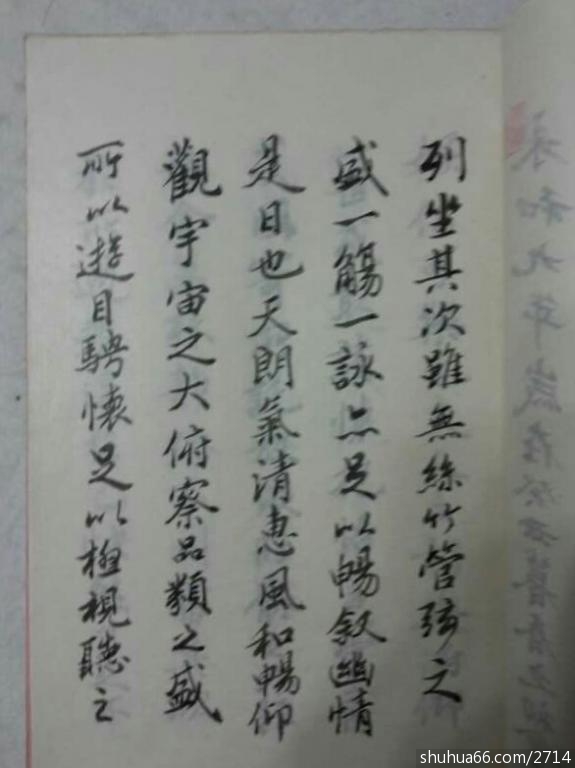 永和九年歲在癸丑暮春之初
列坐其次雖無絲竹管弦之
盛一觴一詠亦足以暢叙幽情
是日也天朗氣清惠風和暢仰
觀宇宙之大俯察品類之盛
所以遊目騁懷足以極視聽之
shuhua66.com/2714